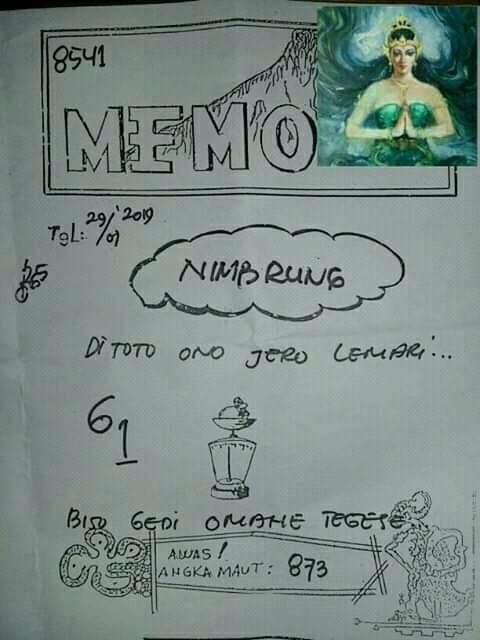 8541
MEMO
TGL: 29/01 '2019
NIMBRUNG
DI TOTO ONO JERO LEMARI...
61
BISO GEDI OMAHE TEGESE
AWAS!
ANGKA MAUT: 873